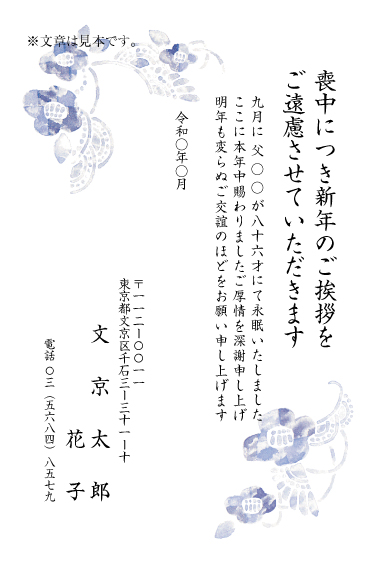 ※文章は見本です。
喪中につき新年のご挨拶を
ご遠慮させていただきます
九月に 父〇〇が八十六才にて永眠いたしました
ここに本年中賜わりましたご厚情を深謝申し上げ
明年も変らぬご交誼のほどをお願い申し上げます
令和〇年〇月
〒一一二ー〇〇一一
東京都文京区千石三ー三十一ー十
文京太郎
花子
電話 〇三（五六八四）八五七九